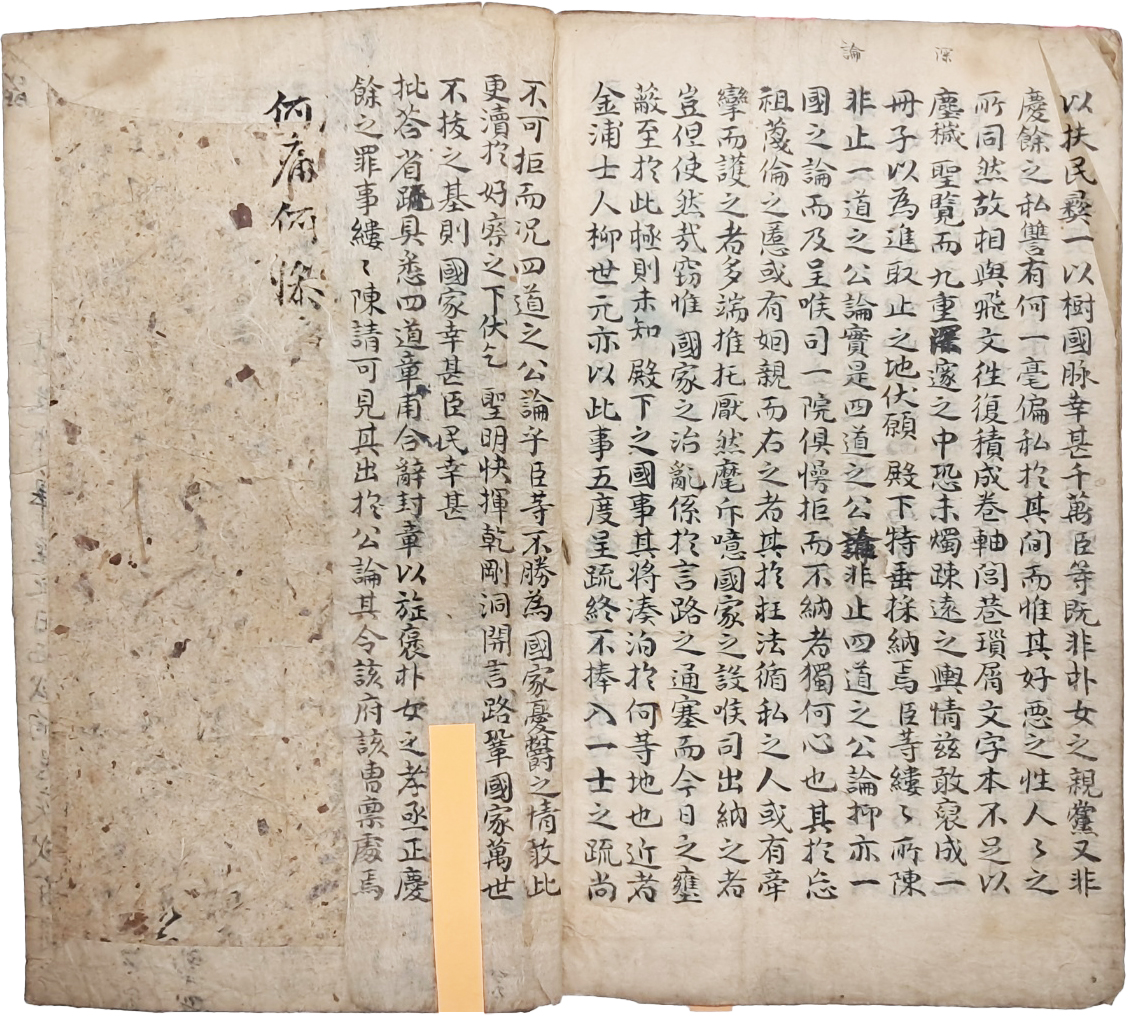 深
論
以扶民彛一以樹國脉幸甚千萬臣等旣非朴女之親黨又非
慶餘之私讐有何一毫偏私於其间而惟其好惡之性人〻之
所同然故相與飛文徃復積成卷軸闾巷瑣屑文字本不足以
塵穢聖覽而九重深邃之中恐未燭踈遠之輿情玆敢裒成一
冊子以為進取止之地伏願 殿下特垂採納焉臣等縷〻所陳
非止一道之公論實是四道之公論非止四道之公論抑亦一
國之論而及呈喉司一院俱慢拒而不納者獨何心也其於忘
祖蔑倫之慝或有姻親而右之者其於枉法循私之人或有牽
攣而護之者多端推托厭然麾斥噫國家之設喉司出納之者
豈但使然㢤窃惟 國家之治亂係於言路之通塞而今日之壅
蔽至於此極則未知 殿下之國事其將湊泊於何等地也近者
金浦士人柳世元亦以此事五度呈疏終不捧入一士之疏尚
不可拒而况四道之公論乎臣等不勝為國家憂欝之情敢此
更瀆於好察之下伏乞 聖明快揮乾剛洞開言路鞏國家萬世
不拔之基則國家幸甚臣民幸甚
批答省疏具悉四道章甫合辭封章以旌褒朴女之孝亟正慶
餘之罪事縷〻陳請可見其出於公論其令該府該曹禀處焉
何痛何